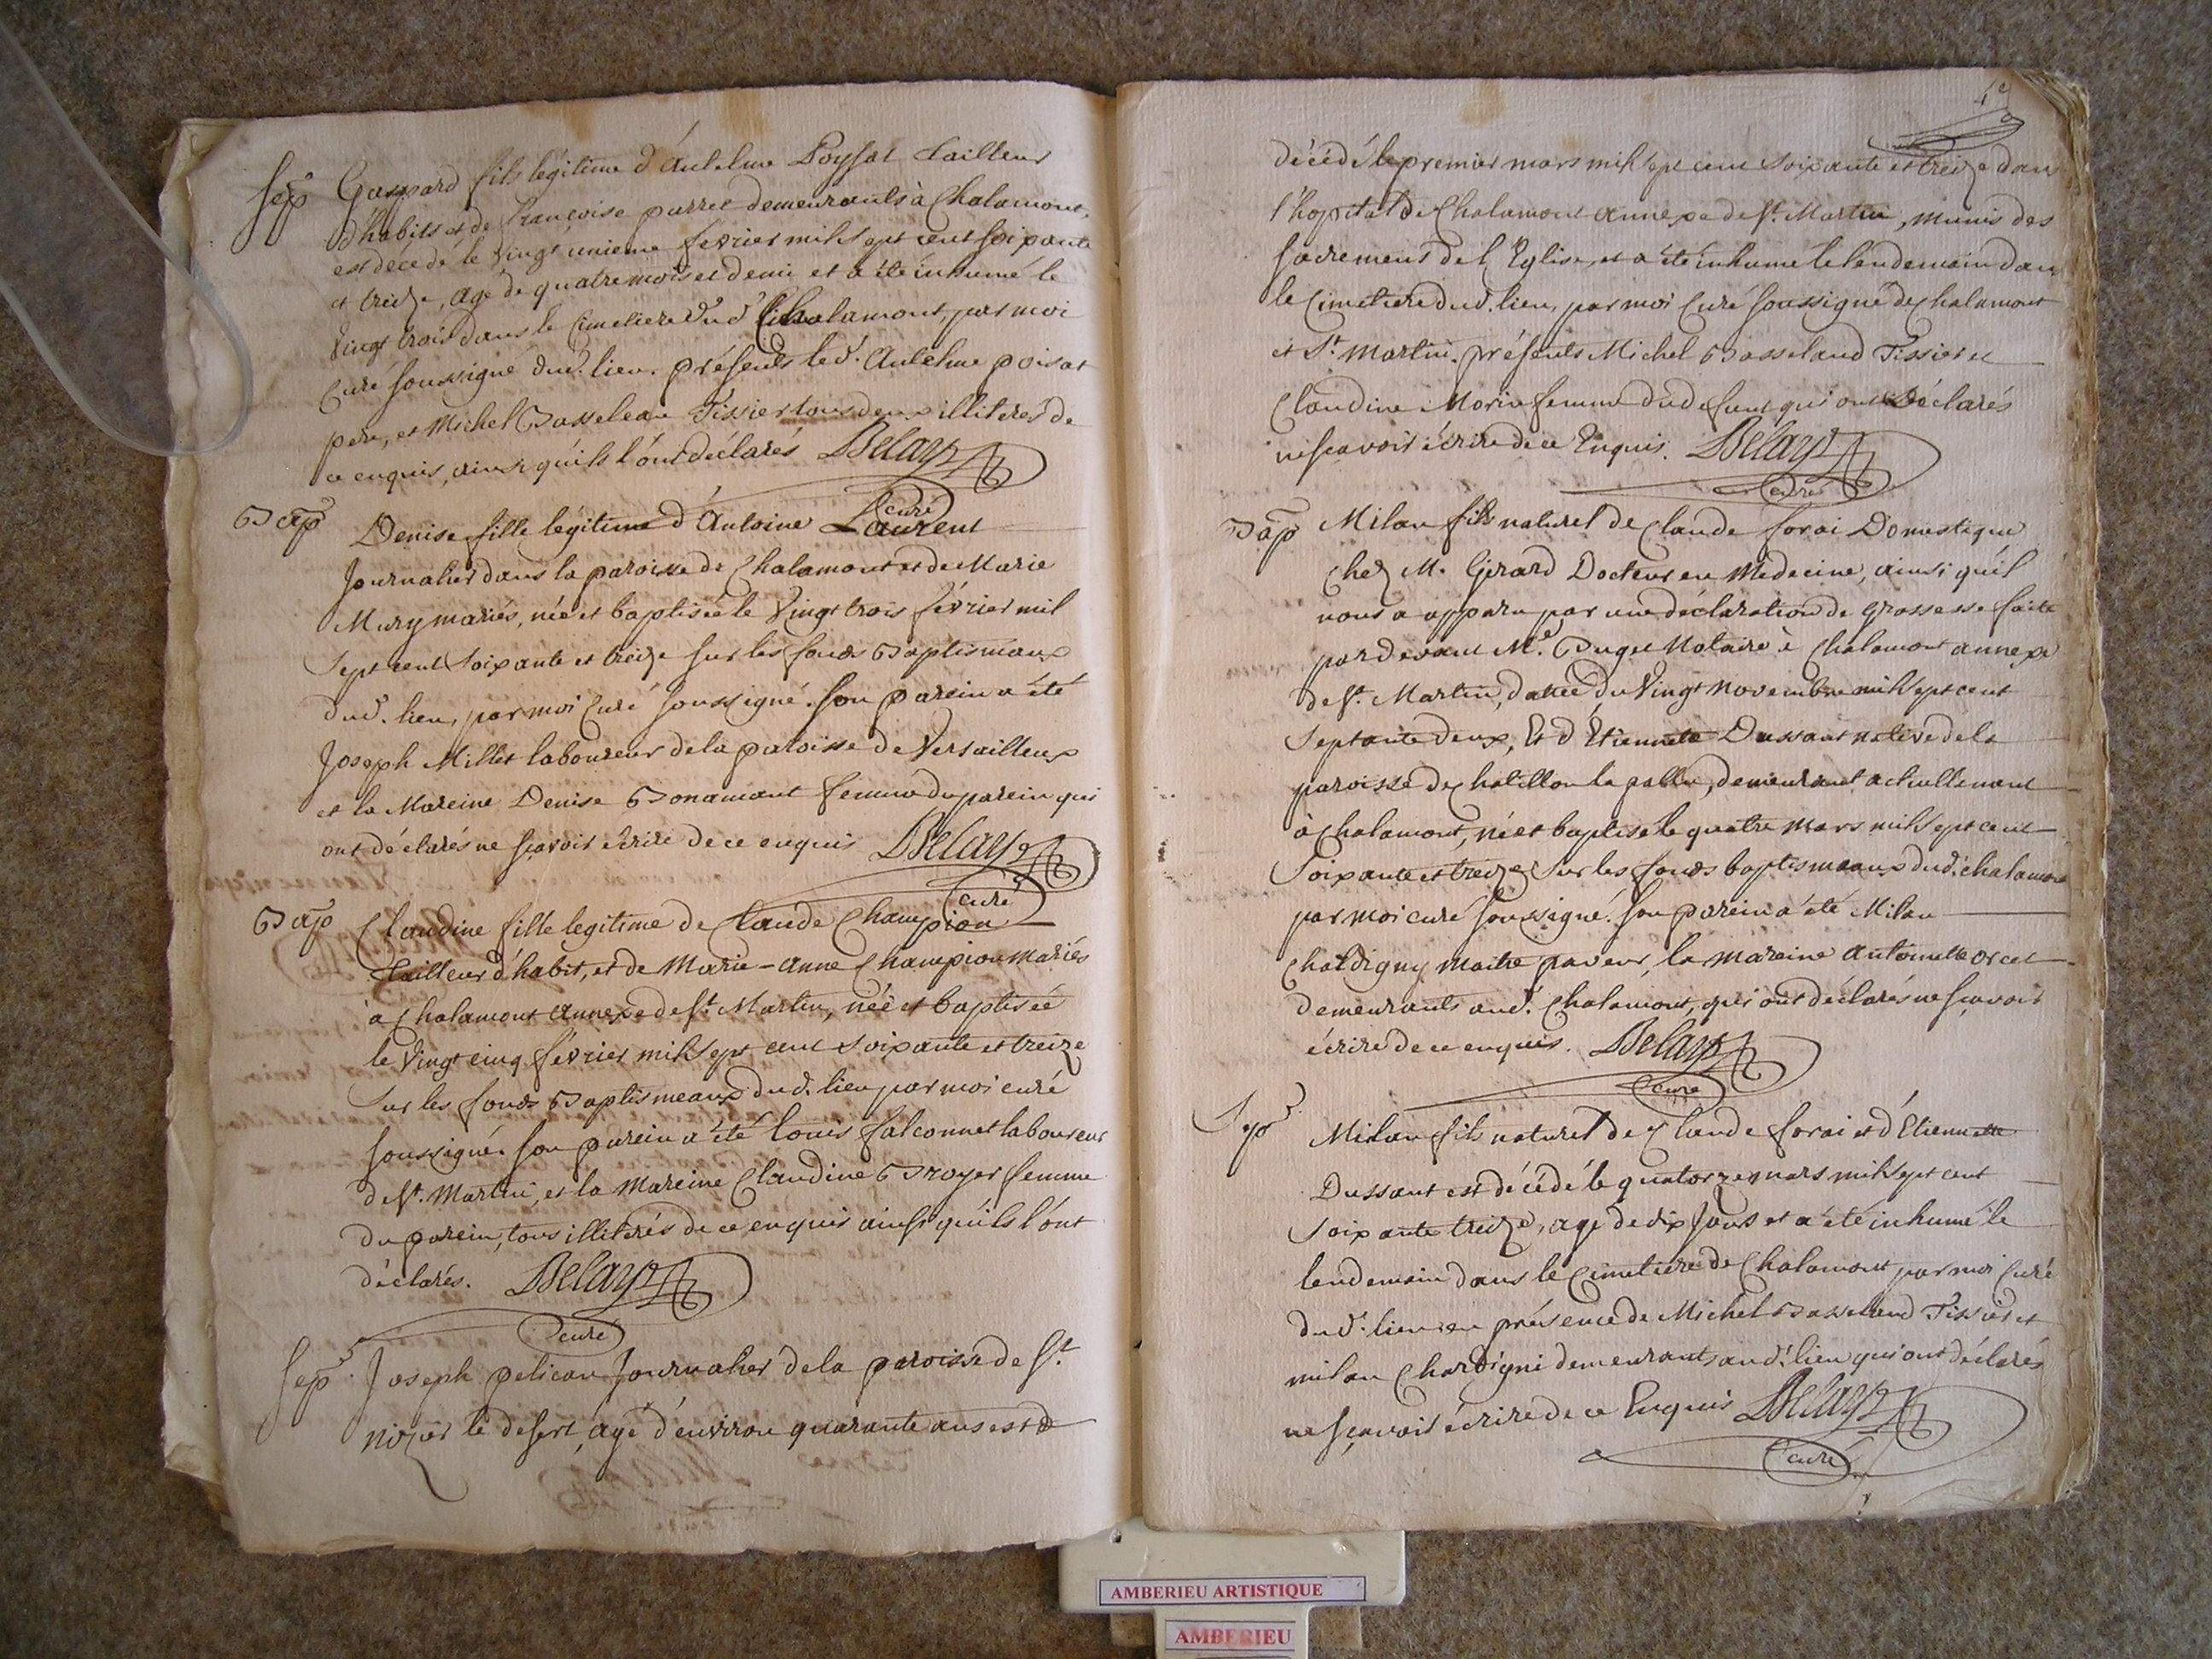 Sep
Gaspard fils légitime d'Antelme Poysat tailleur
d'habits et de françoise parret demeurants à Chalamont,
est decedé le vingt unieme fevrier mil sept cent soixante
et treize, age de quatre mois et demi et a été inhumé le
vingt trois dans le cimetiere dud Chalamont, par moi
curé soussigné dud. lieu. présents led. Antelme poisat
pere, et Michel Basseleau Tissier tous deux illiterés de
ce enquis, ainsi qu'ils l'ont déclarés Belay
curé
Bap
Denise fille légitime d'Antoine Laurent
Journalier dans la paroisse de Chalamont et de Marie
Mury mariés, née et baptisée le vingt trois février mil
sept cent soixante et treize sur les fonds Baptismaux
dud. lieu, par moi curé soussigné. son parein a été
Joseph Millet laboureur de la paroisse de Versailleux
et la Mareine Denise Bonamant femme du parein qui
ont déclarés ne sçavoir écrire de ce enquis Belay
curé
Bap
Claudine fille legitime de Claude Champion
tailleur d'habit, et de Marie-anne Champion mariés
à Chalamont annexe de St. Martin, née et baptisée
le vingt cinq février mil sept cent soixante et treize
sur les fonds Baptismeaux dud. lieu par moi curé
soussigné. son parein a été louis falconnet laboureur
de St. Martin, et la mareine Claudine Broyer femme
du parein, tous illiterés de ce enquis ainsi qu'ils l'ont
déclarés. Belay
curé
Sep
Joseph pelican Journalier de la paroisse de St.
nizier le desert, agé d'environ quarante ans est de
décédé le premier mars mil sept cent soixante et treize dans
l'hopital de Chalamont annexe de St. Martin, munis des
sacrements de l'Eglise, et a été inhumé le lendemain dans
le cimetiere dud. lieu, par moi curé soussigné de Chalamont
et St. martin. présents Michel Basseland Tissier et
Claudine Morin femme dud defunt qui ont déclarés
ne sçavoir écrire de ce Enquis. Belay
curé
Bap
Milan fils naturel de Claude forai Domestique
chez M. Girard Docteur en Médecine, ainsi qu'il
nous a apparu par une déclaration de grossesse faite
pardevant Me. Buget Notaire à Chalamont annexe
de St. Martin, datée du vingt novembre mil sept cent
septante deux, Et d'Étiennette Dussaut native de la
paroisse de chatillon la pallu, demeurant actuellement
à Chalamont, né et baptisé le quatre mars mil sept cent
soixante et treize sur les fonds baptismeaux dud. chalamont
par moi curé soussigné. son parein a été Milan
chardigny maitre paveur, la mareine antoinette orcet
demeurants aud. Chalamont, qui ont déclarés ne sçavoir
écrire de ce enquis. Belay
curé
Sep
Milan fils naturel de Claude forai et d'Etiennette
Dussaut est décédé le quatorze mars mil sept cent
soixante treize, age de dix jours et a été inhumé le
lendemain dans le Cimetiere de Chalamont par moi curé
dud. lieu en présence de Michel Basseland Tissier et
milan Chardigni demeurants aud. lieu qui ont déclarés
ne sçavoir écrire de ce Enquis Belay
curé
AMBERIEU ARTISTIQUE
AMBERIEU